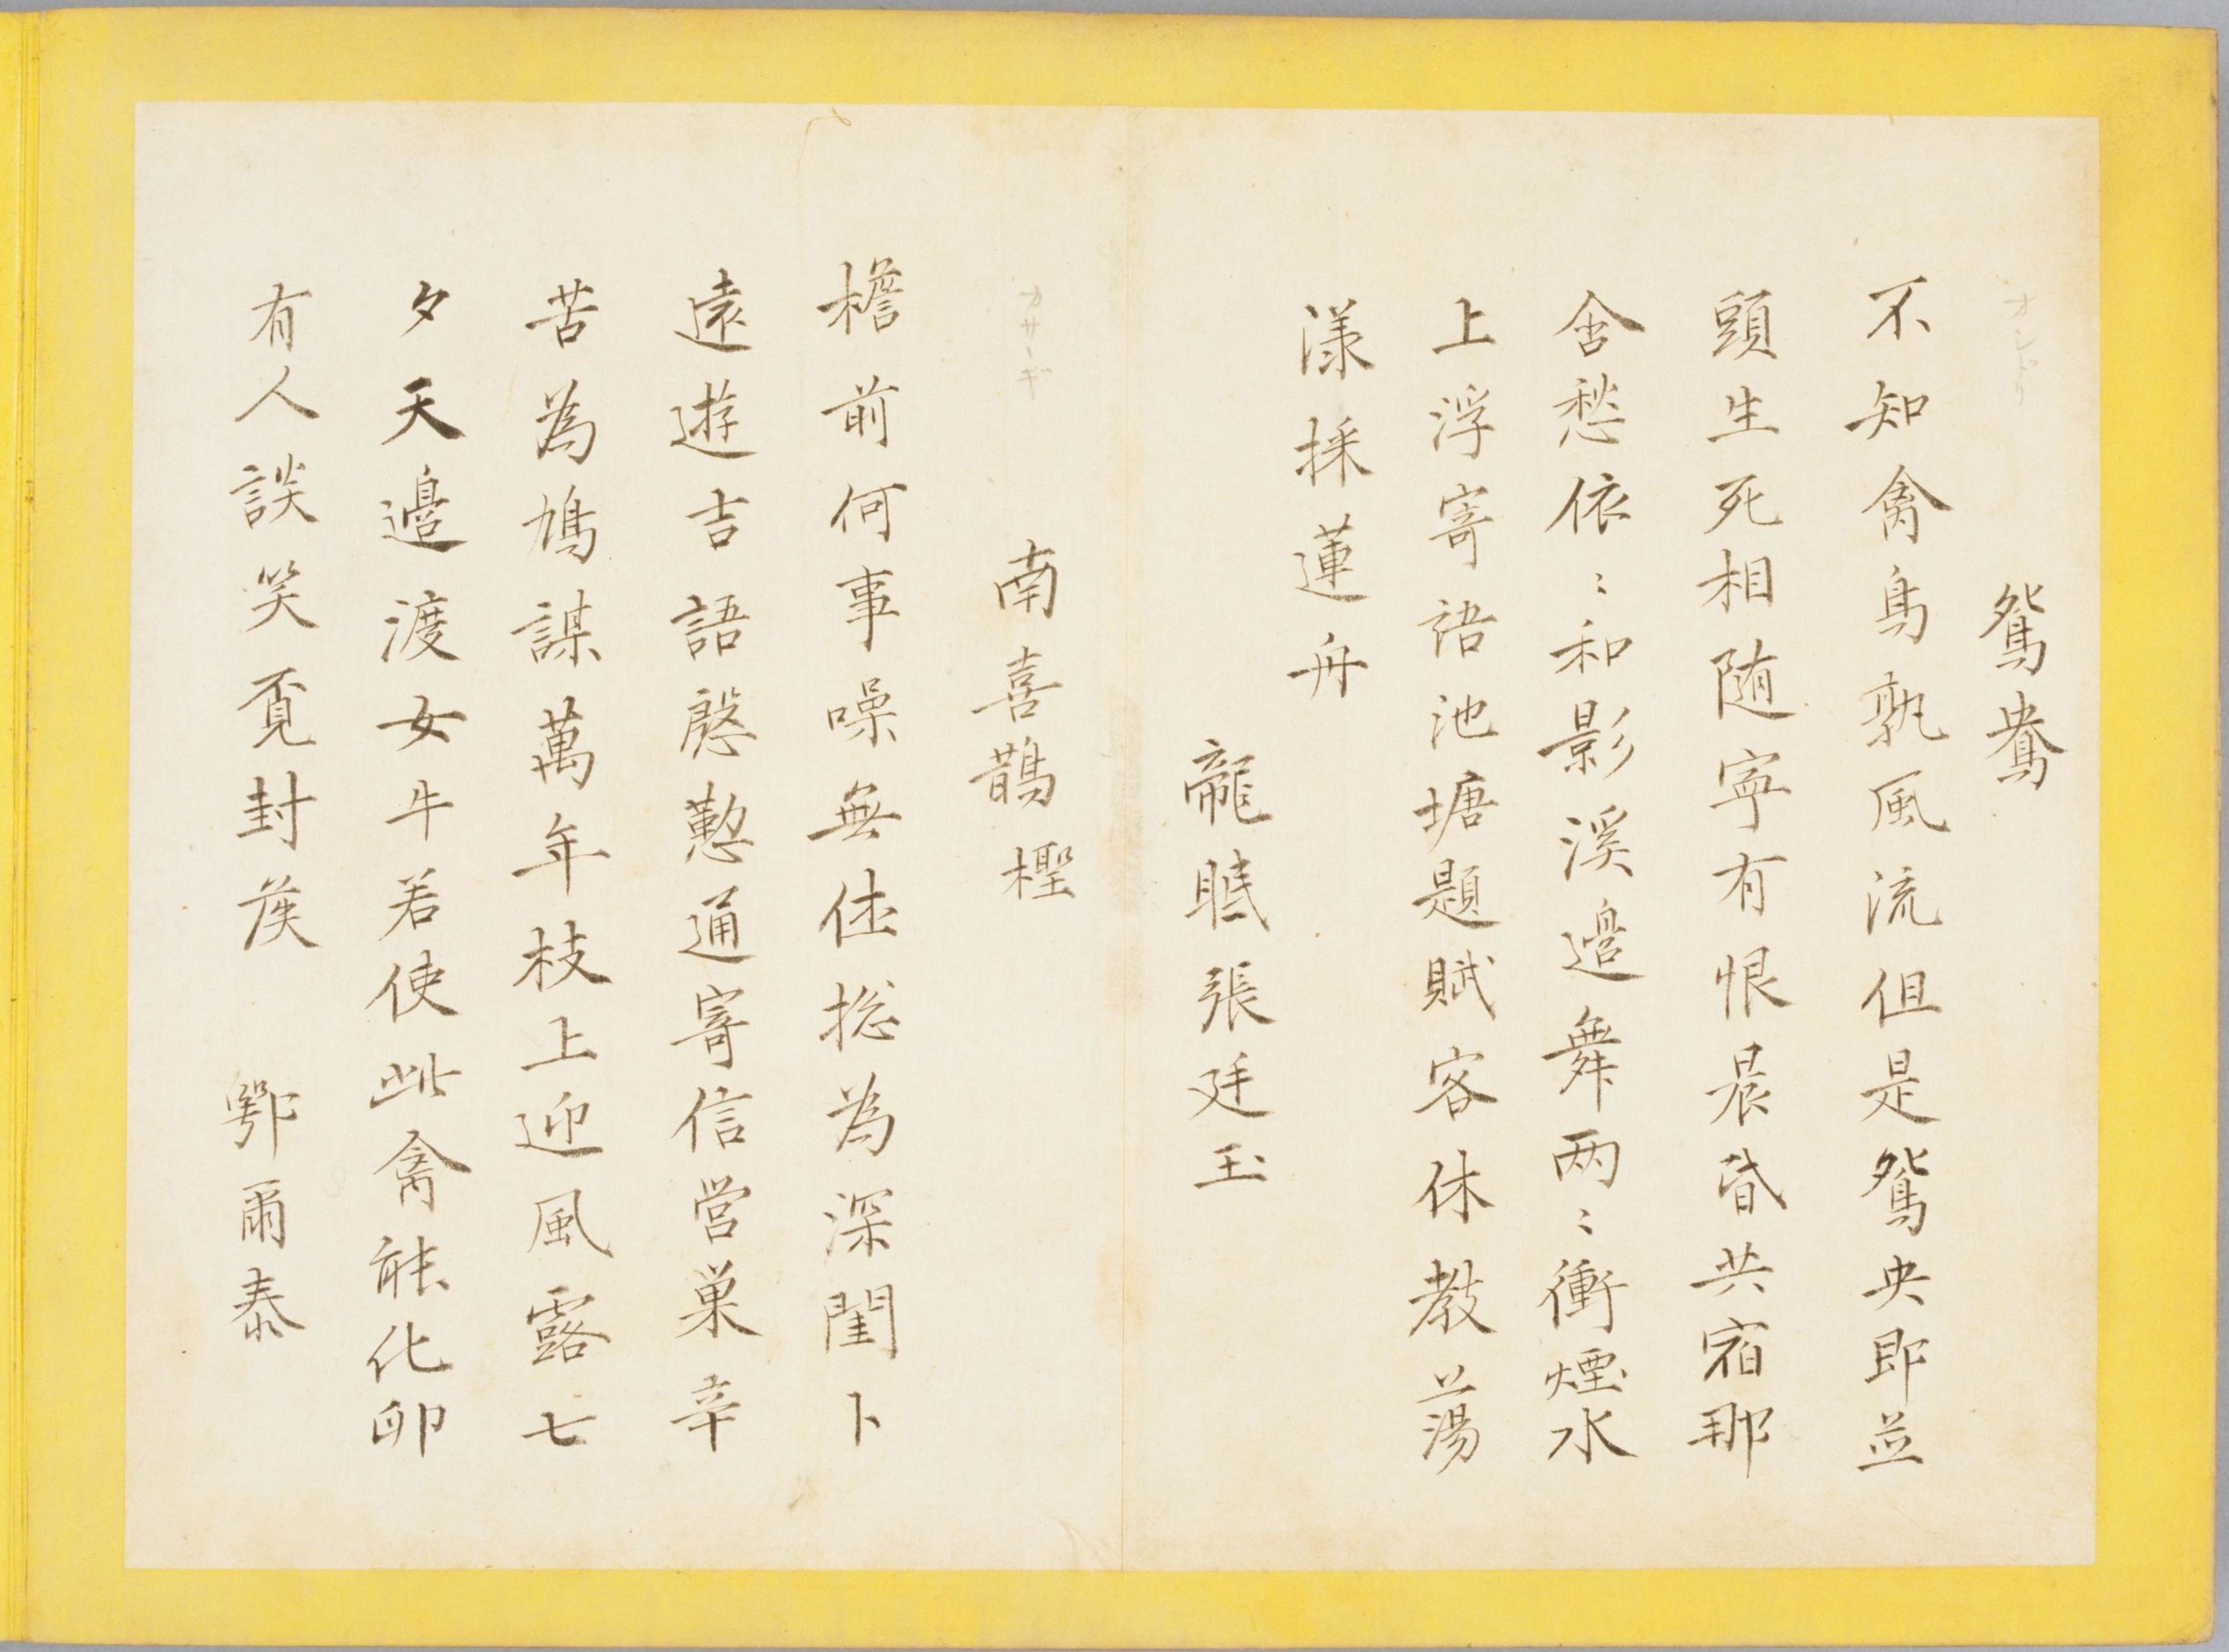 オシドリ
鴛鴦
不知禽鳥孰風流但是鴛央即並
頭生死相随寧有恨晨昏共宿那
含愁依〻和影溪邉舞两〻衝煙水
上浮寄語池塘題賦客休教蕩
漾採蓮舟
龍眠張廷玉
カサヽギ
南喜鵲檉
檐前何事噪無住捴為深閨卜
遠遊吉語慇懃通寄信営巢辛
苦為鳩謀萬年枝上迎風露七
夕天邉渡女牛若使此禽能化印
有人談笑覔封侯 鄂爾泰